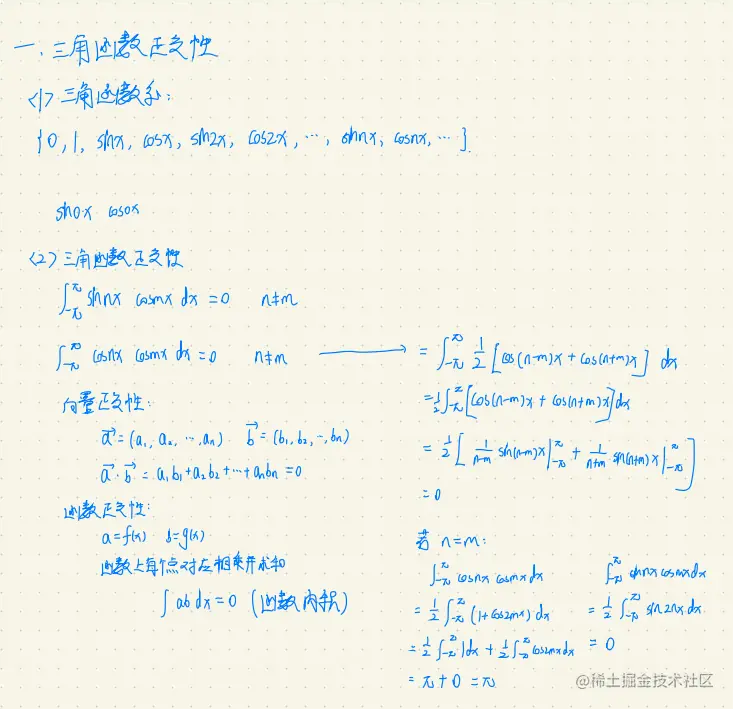 一. 三角函数正交性
<1> 三角函数系:
{0, 1, sinx, cosx, sin2x, cos2x, ⋯, sinnx, cosnx, ⋯}
sin0x cos0x
<2> 三角函数正交性
∫_{-π}^{π} sinnx cosmx dx = 0 n≠m
∫_{-π}^{π} cosnx cosmx dx = 0 n≠m → = ∫_{-π}^{π} 1/2 [cos(n-m)x + cos(n+m)x] dx
= 1/2 ∫_{-π}^{π} [cos(n-m)x + cos(n+m)x] dx
= 1/2 [ 1/(n-m) sin(n-m)x |_{-π}^{π} + 1/(n+m) sin(n+m)x |_{-π}^{π} ]
= 0
向量正交性:
a⃗ = (a₁, a₂, ⋯, aₙ) b⃗ = (b₁, b₂, ⋯, bₙ)
a⃗·b⃗ = a₁b₁ + a₂b₂ + ⋯ + aₙbₙ = 0
函数正交性:
a = f(x) b = g(x)
函数上每个点对应相乘并求和
∫ ab dx = 0 (函数内积)
若 n = m:
∫_{-π}^{π} cosnx cosmx dx
= 1/2 ∫_{-π}^{π} (1 + cos2mx) dx
= 1/2 ∫_{-π}^{π} 1 dx + 1/2 ∫_{-π}^{π} cos2mx dx
= π + 0 = π
∫_{-π}^{π} sinnx cosmx dx
= 1/2 ∫_{-π}^{π} sin2nx dx
= 0
@稀土掘金技术社区